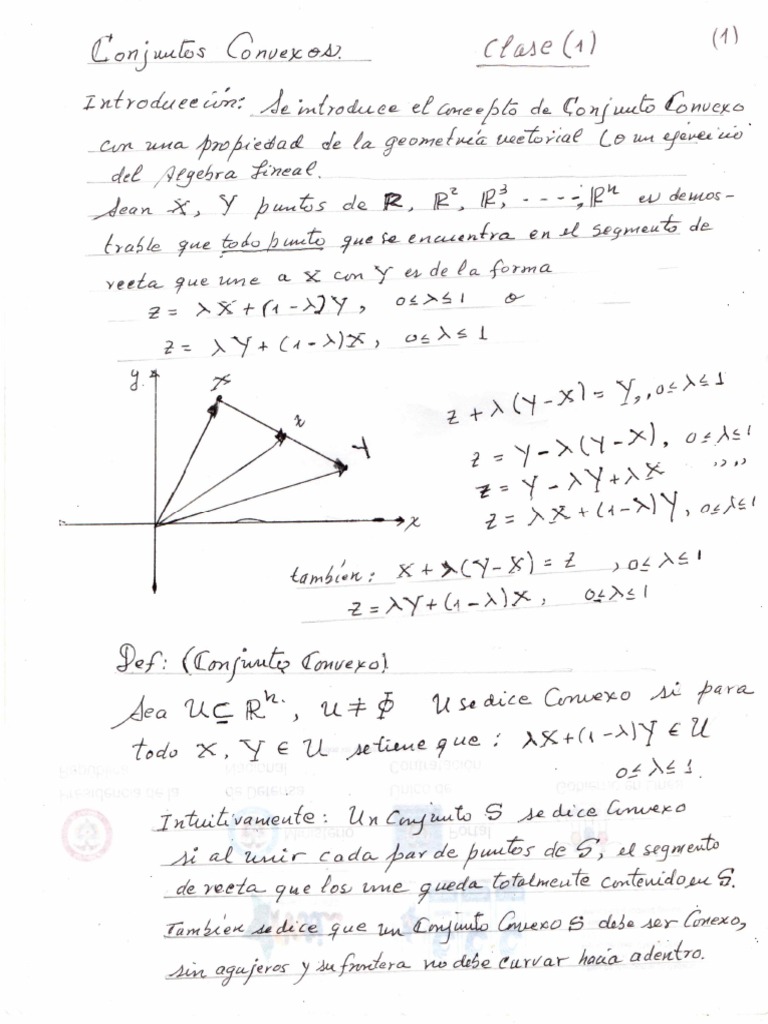 Conjuntos Convexos. Clase (1) (1)
Introducción: Se introduce el concepto de Conjunto Convexo
con una propiedad de la geometría vectorial (o un ejercicio
del Algebra Lineal.
Sean X, Y puntos de R, R², R³, ----, Rⁿ es demos-
trable que todo punto que se encuentra en el segmento de
recta que une a X con Y es de la forma
z = λX+(1-λ)Y, 0≤λ≤1 o
z = λY+(1-λ)X, 0≤λ≤1
y
X
z
Y
x
z+λ(Y-X) = Y, 0≤λ≤1
z = Y-λ(Y-X), 0≤λ≤1
z = Y-λY+λX ,, ,,
z = λX+(1-λ)Y, 0≤λ≤1
también: X+λ(Y-X) = z , 0≤λ≤1
z = λY+(1-λ)X, 0≤λ≤1
Def: (Conjunto Convexo)
Sea U⊆Rⁿ, U≠Φ U se dice Convexo si para
todo X, Y ∈ U se tiene que: λX+(1-λ)Y ∈ U
0≤λ≤1.
Intuitivamente: Un Conjunto S se dice Convexo
si al unir cada par de puntos de S, el segmento
de recta que los une queda totalmente contenido en S.
También se dice que un Conjunto Convexo S debe ser Conexo,
sin agujeros y su frontera no debe curvar hacia adentro.